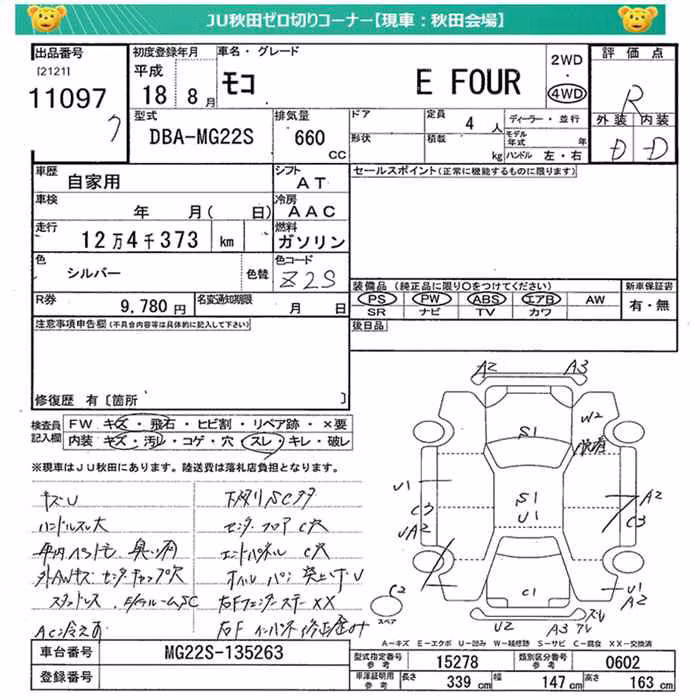 JU秋田ゼロ切りコーナー【現車：秋田会場】
出品番号
[2121]
11097
ク
初度登録年月
平成
18 8月
車名・グレード
モコ E FOUR
2WD
・
4WD
評価点
R
外装 内装
D D
型式
DBA-MG22S
排気量
660
CC
ドア
形状
定員
4 人
積載
kg
ディーラー・並行
モデル年式 年
ハンドル 左・右
車歴
自家用
シフト
AT
セールスポイント(正常に機能するものに限ります)
車検
年 月( 日)
冷房
AAC
走行
12万4千373 km
燃料
ガソリン
色
シルバー
色替
色コード
Z2S
装備品 (純正品に限り〇をつけてください)
新車保証書
PS PW ABS エアB AW
有・無
SR ナビ TV カワ
R券
9,780 円
名変通知期限
月 日
後日品
注意事項申告欄(不具合内容等は具体的に記入して下さい)
修復歴 有〔箇所 〕
検査員
記入欄
FW キズ・飛石・ヒビ割・リペア跡・×要
内装 キズ・汚レ・コゲ・穴・スレ・キレ・破レ
※現車はJU秋田にあります。陸送費は落札店負担となります。
キズU
ハンドルスレ大
センターフロアC穴
エンドパネル C穴
スタッドレス
A2
A3
W2
S1
S1
U1
U1
C3
UA2
A2
C3
C1
C2
スペア
U1
A2
U2
A3
A－キズ E－エクボ U－凹み W－補修跡 S－サビ C－腐食 XX－交換済
車台番号
MG22S-135263
登録番号
型式指定番号
参考
15278
類別区分番号
参考
0602
車庫証明用
参考
長さ
339 cm
幅
147 cm
高さ
163 cm